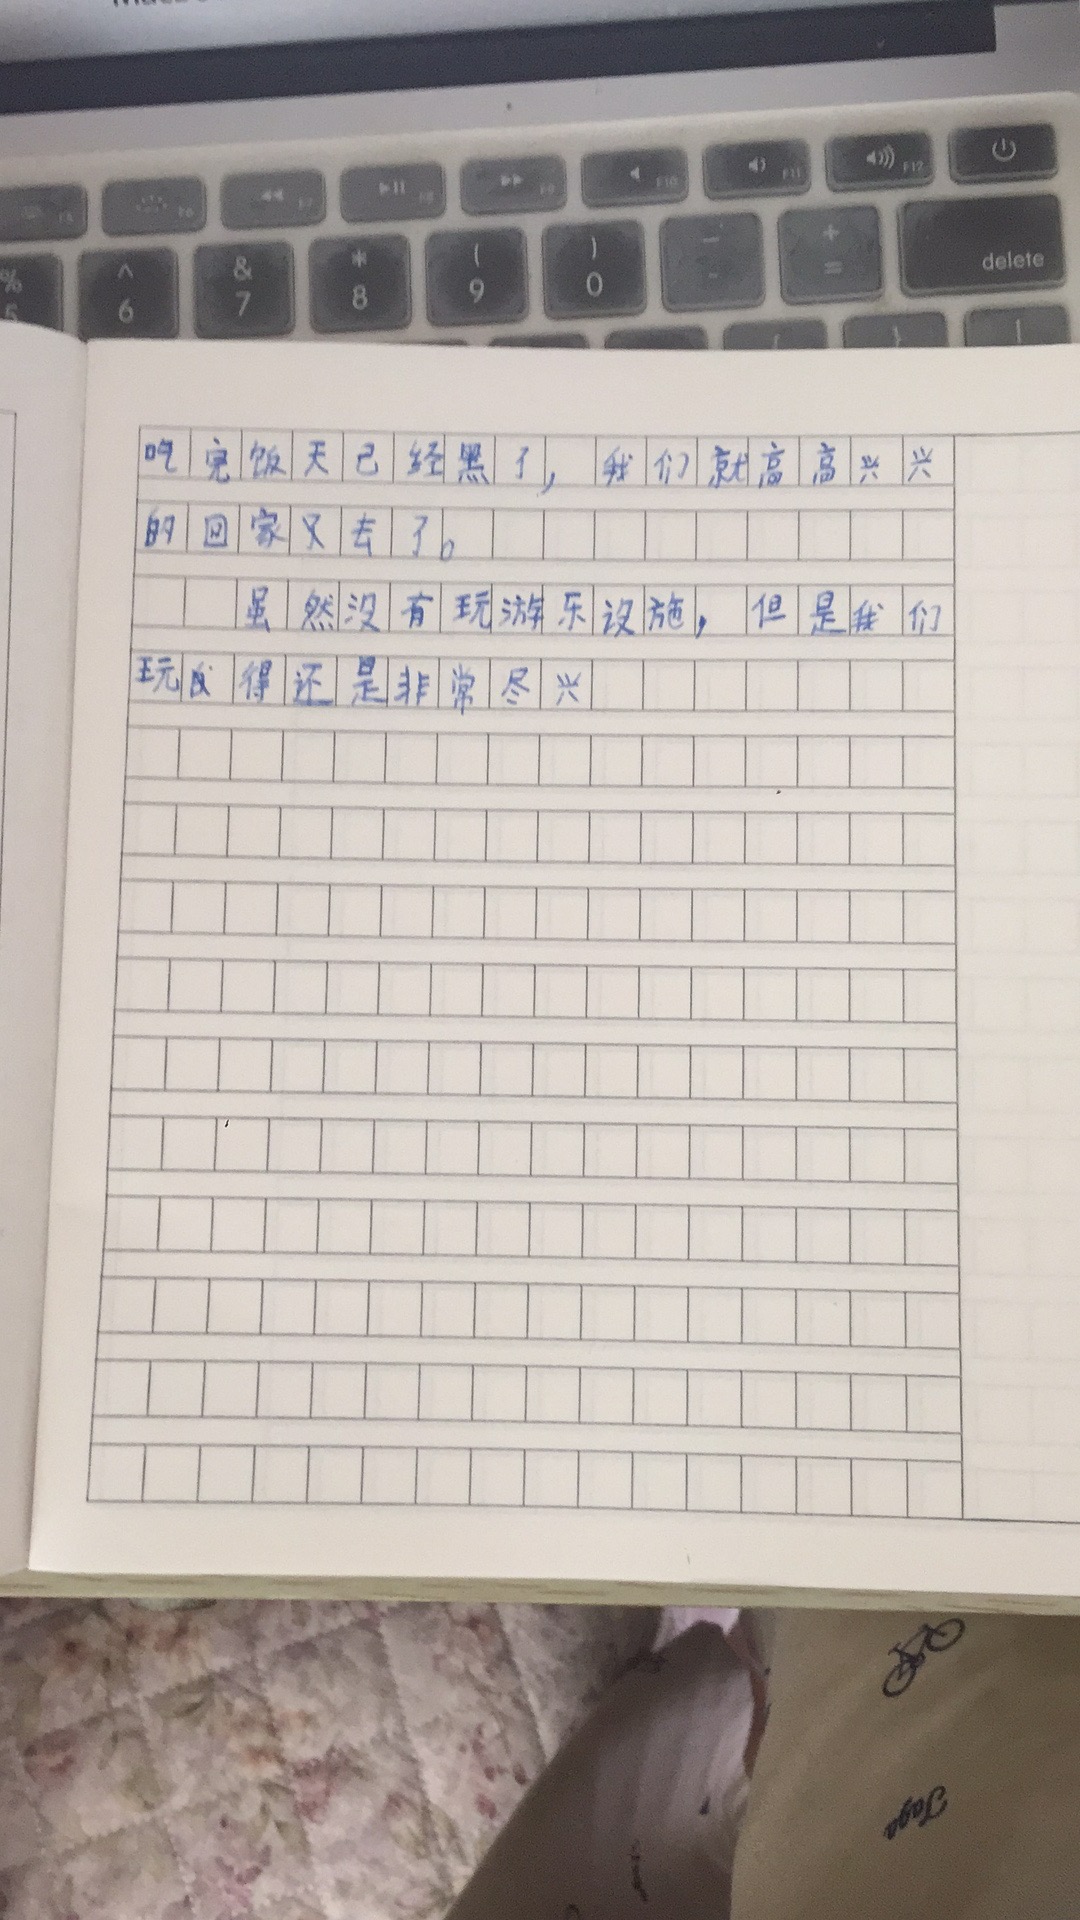 F5 F6 F7 F8 F9 F10 F11 F12
% 5 ^ 6 & 7 * 8 ( 9 ) 0 — - + = delete
吃完饭天已经黑了，我们就高高兴兴
的回家又去了。
虽然没有玩游乐设施，但是我们
玩得还是非常尽兴
Jago